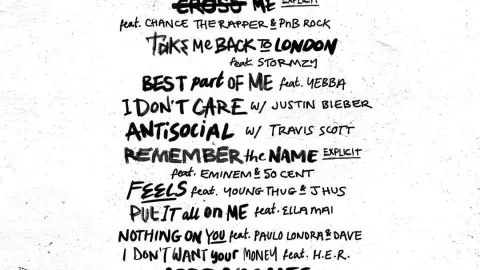 CROSS ME EXPLICIT
feat. CHANCE THE RAPPER & PnB ROCK
TAKE Me BACK TO LONDON
feat. STORMZY
BEST part OF ME feat. YEBBA
I DON'T CARE w/ JUSTIN BIEBER
ANTISOCIAL w/ TRAVIS SCOTT
REMEMBER the NAME EXPLICIT
feat. EMINEM & 50 CENT
FEELS feat. YOUNG THUG & J HUS
PUT IT all on ME feat. ELLA MAI
NOTHING ON YOU feat. PAULO LONDRA & DAVE
I DON'T WANT your MONEY feat. H.E.R.